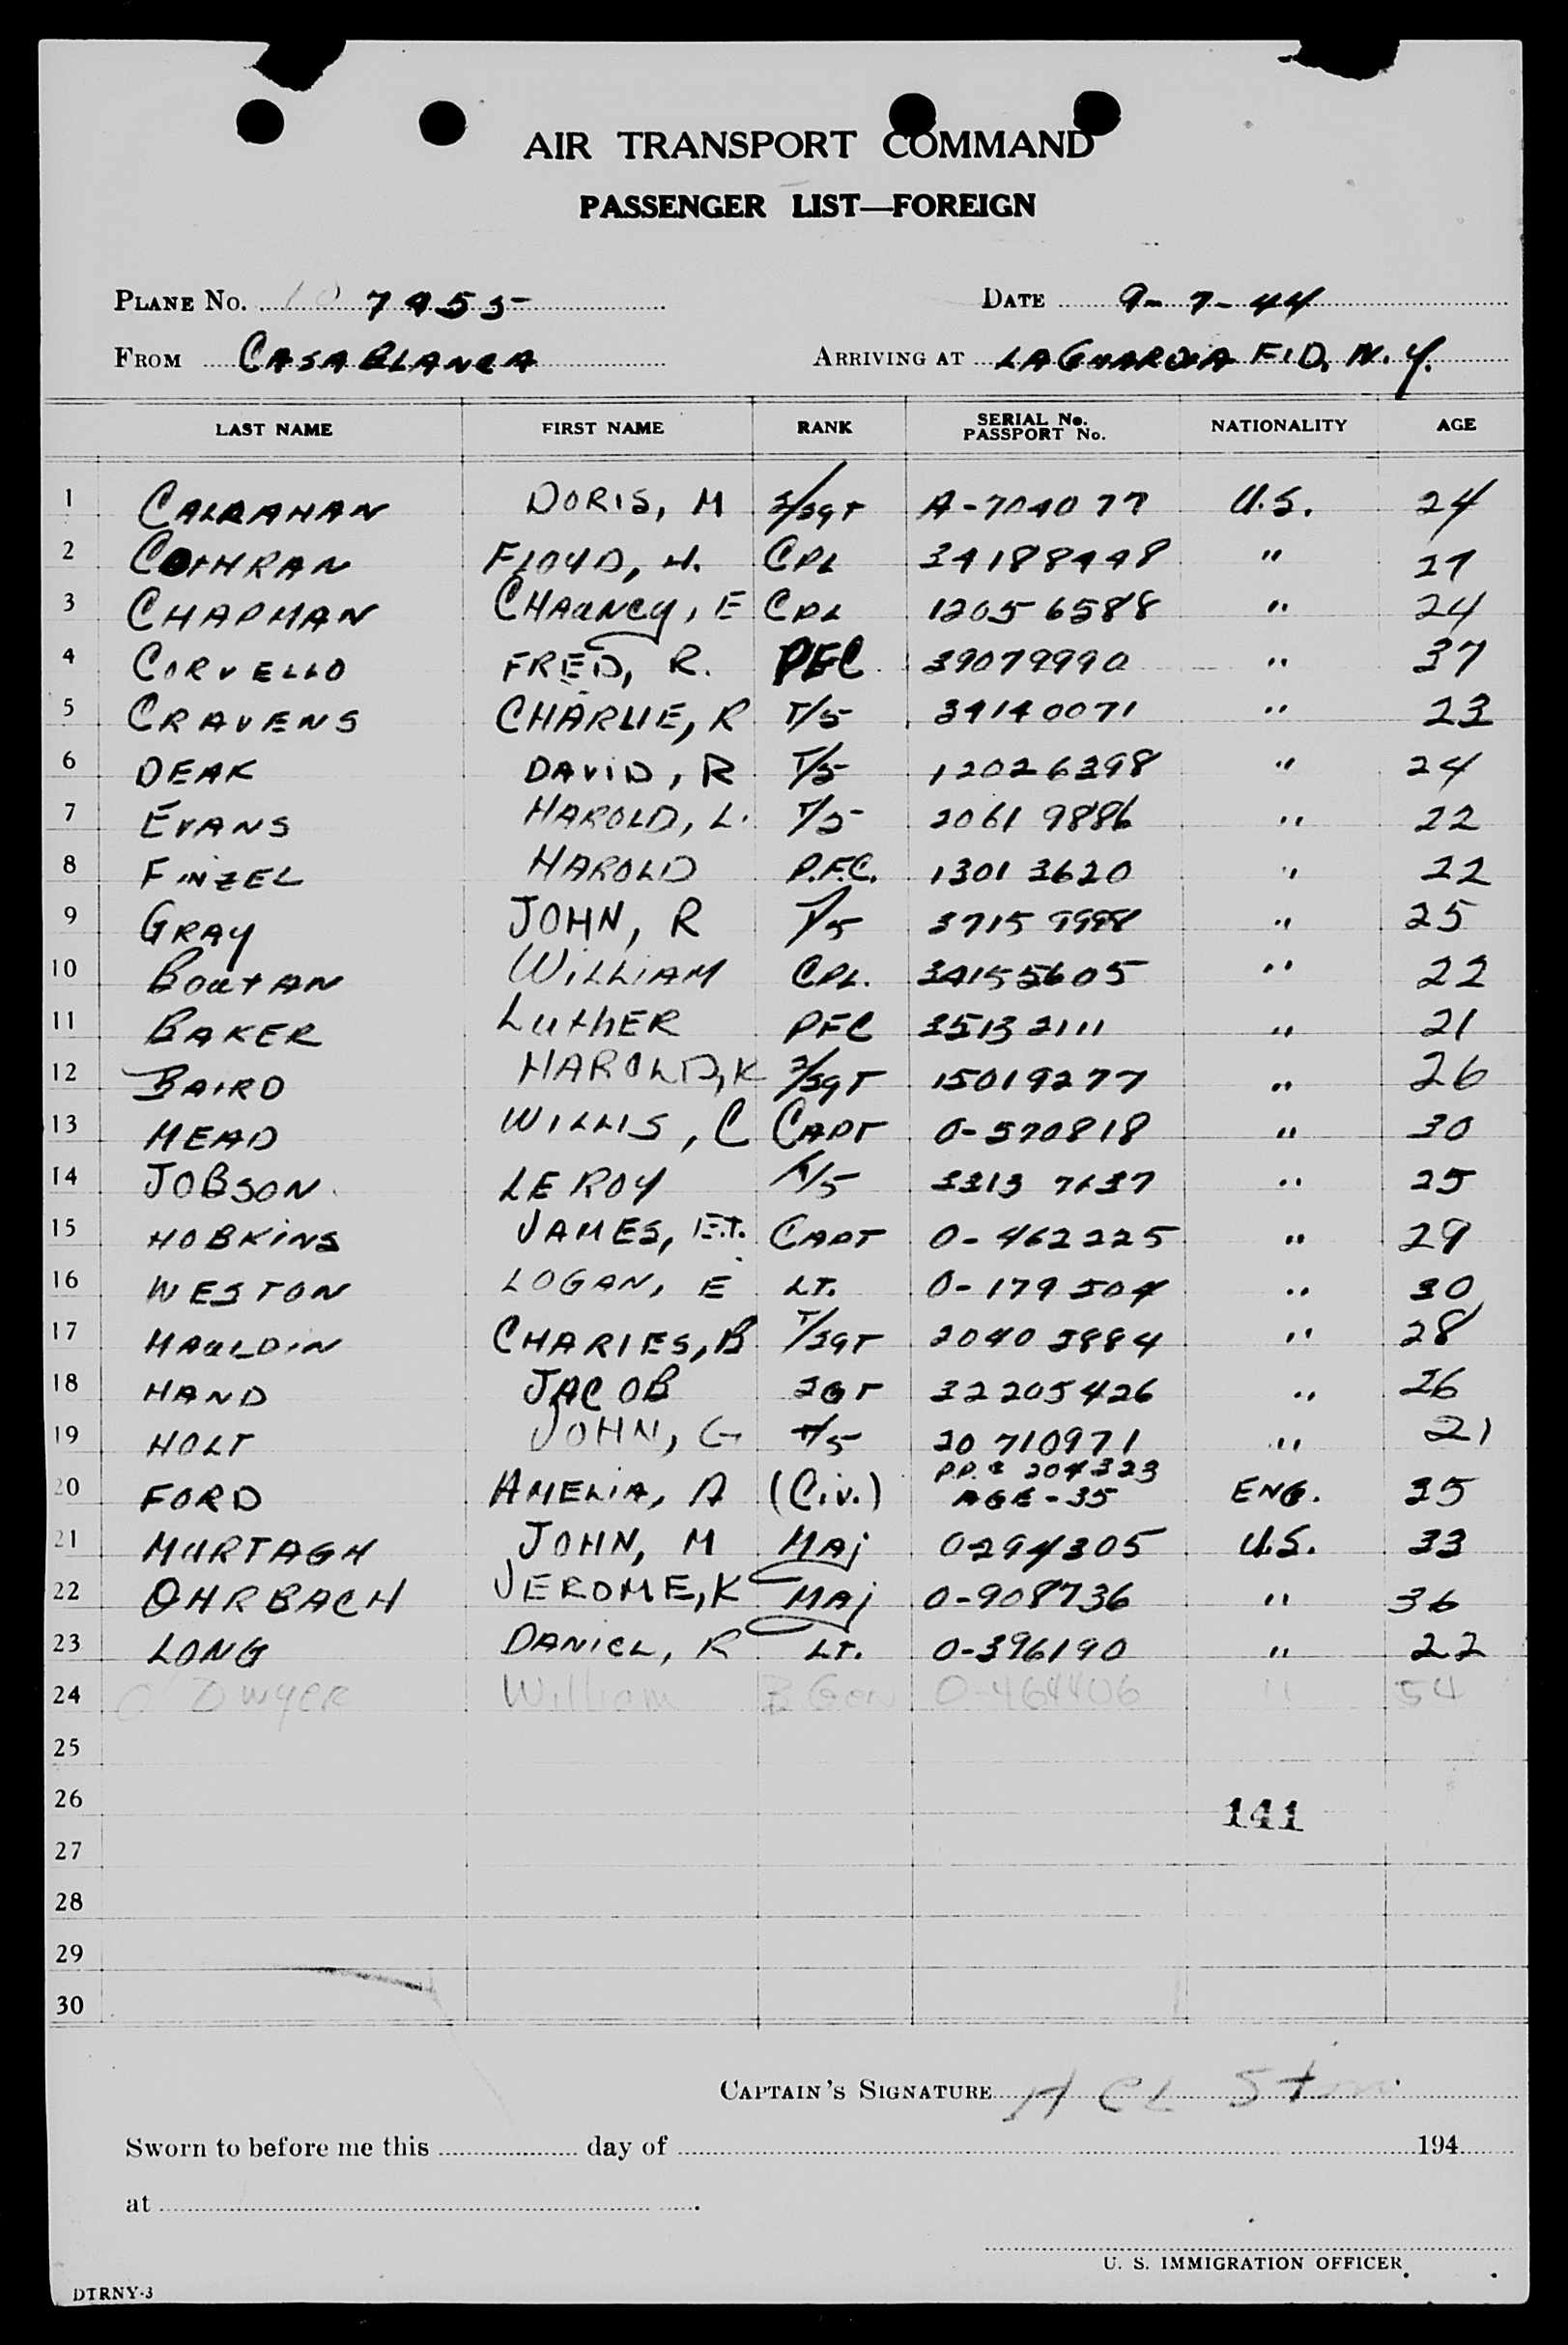 AIR TRANSPORT COMMAND
PASSENGER LIST—FOREIGN
PLANE No. 10 7953 DATE 9-7-44
FROM CASABLANCA ARRIVING AT LAGUARDIA FLD. N.Y.
LAST NAME FIRST NAME RANK SERIAL No. PASSPORT No. NATIONALITY AGE
1 DORIS, M S/SGT U.S. 24
2 COTHRAN FLOYD, H. CPL 34188448 " 27
3 CHAPMAN CHAUNCY, E CPL 12056588 " 24
4 CORVELLO FRED, R. PFC 39079990 " 37
5 CRAVENS CHARLIE, R T/5 34140071 " 23
6 DEAK DAVID, R T/5 12026398 " 24
7 EVANS HAROLD, L. T/5 2061 9886 " 22
8 FINZEL HAROLD P.F.C. 1301 3620 " 22
9 GRAY JOHN, R T/5 3715 9998 " 25
10 BOUTAN WILLIAM CPL. 34155605 " 22
11 BAKER LUTHER PFC 3513 2111 " 21
12 BAIRD HAROLD, K S/SGT 15019277 " 26
13 MEAD WILLIS, C CAPT O-570818 " 30
14 JOBSON LEROY T/5 3313 7637 " 25
15 HOBKINS JAMES, E.T. CAPT O-462225 " 29
16 WESTON LOGAN, E LT. O-179504 " 30
17 MAULDIN CHARLES, B T/SGT 2040 3884 " 28
18 HAND JACOB SGT 32205426 " 26
19 HOLT JOHN, G T/5 20 710971 " 21
20 FORD AMELIA, A (Civ.) P.P.# 204323 AGE-35 ENG. 35
21 MURTAGH JOHN, M MAJ O-294305 U.S. 33
22 OHRBACH JEROME, K MAJ O-908736 " 36
23 LONG DANIEL, R LT. O-396190 " 22
24 O'Dwyer William B Gen O-464406 " 54
25
26 141
27
28
29
30
CAPTAIN'S SIGNATURE
Sworn to before me this day of 194
at
U. S. IMMIGRATION OFFICER
DTRNY-3